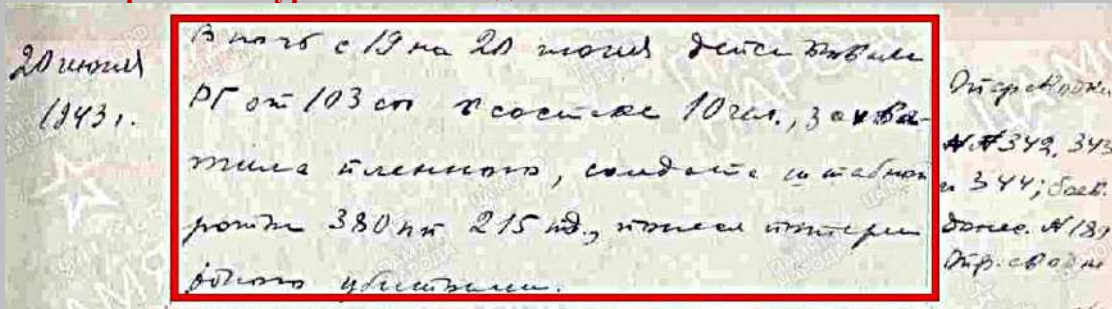 20 июня
1943 г.
В ночь с 19 на 20 июня действовала
РГ от 103 сп в составе 10 чел., захва-
тила пленного, солдата штабной
роты 380 пп 215 пд,
одного убитым.
Опер. сводки
№№ 342, 343
и 344; боев.
донес. №
Опер. сводки